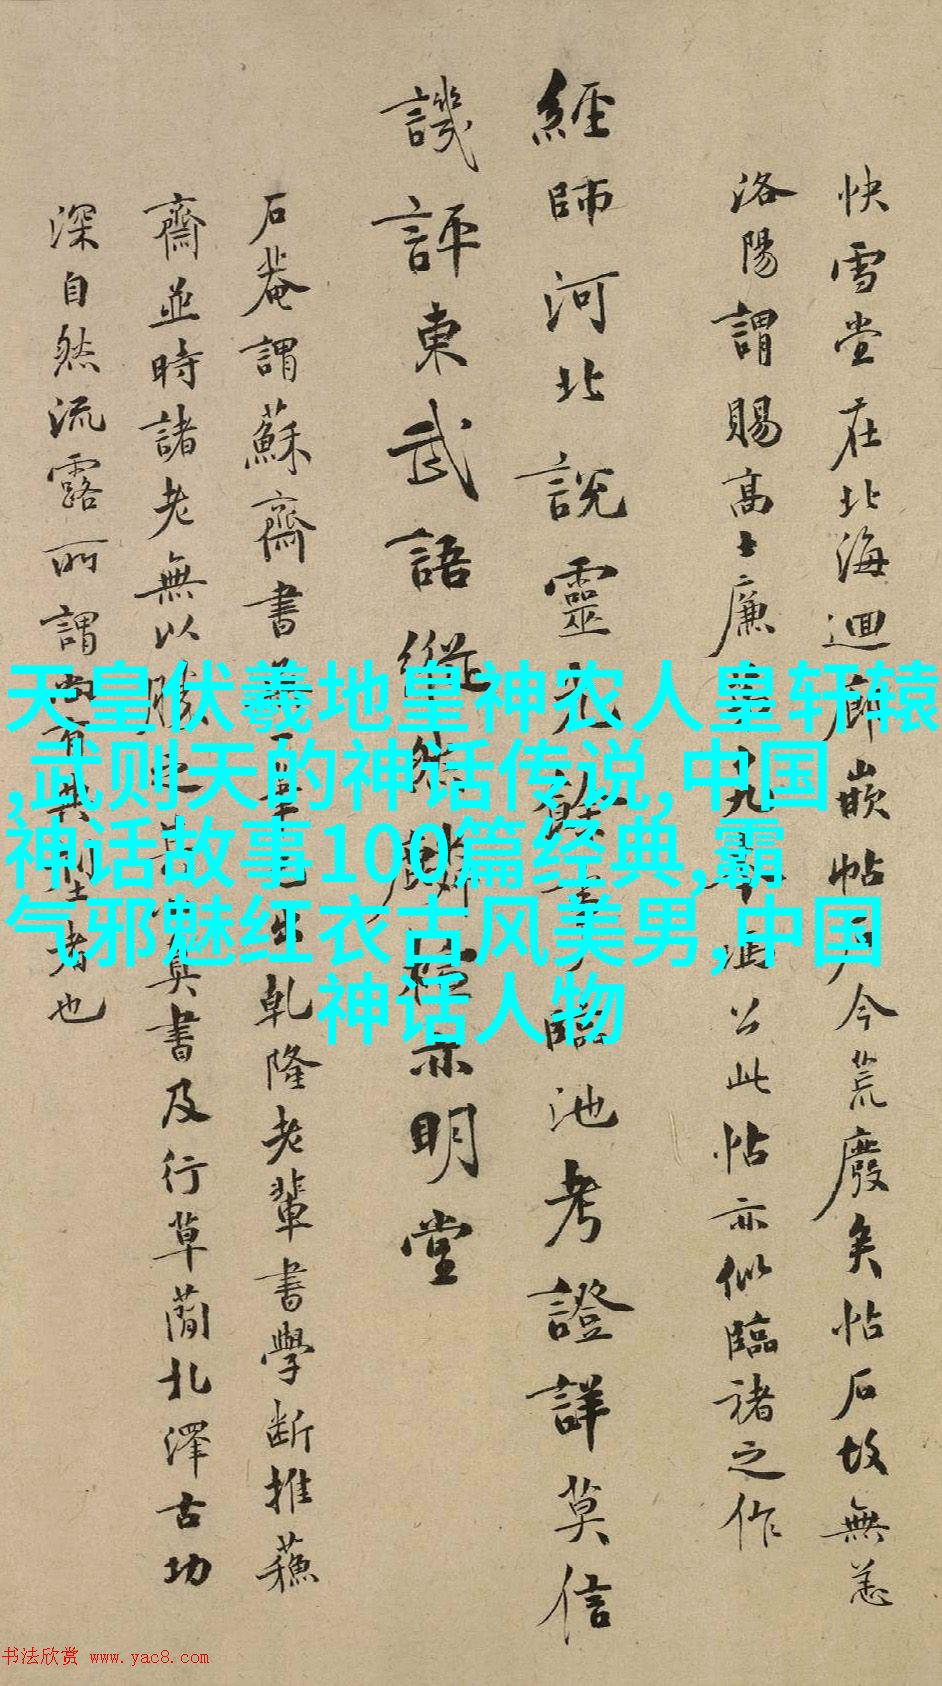 快雪堂在北海迴廊嵌帖今荒廢矣帖石故無恙
洛陽謂賜高士廉公此帖亦似臨褚之作
經師河北說靈光餘臨池考證詳莫信
譏評東武語縱然明堂
石菴謂蘇齋書出乾隆老輩書學斷推蘓
齋並時諸老無以勝之真書及行草蘭北澤古功
深自然流露所謂尚有典型者也
天皇伏羲地皇神农人皇轩辕
,武则天的神话传说,中国
神话故事100篇经典,霸
气邪魅红衣古风美男,中国
神话人物
书法欣赏 www.yac8.com